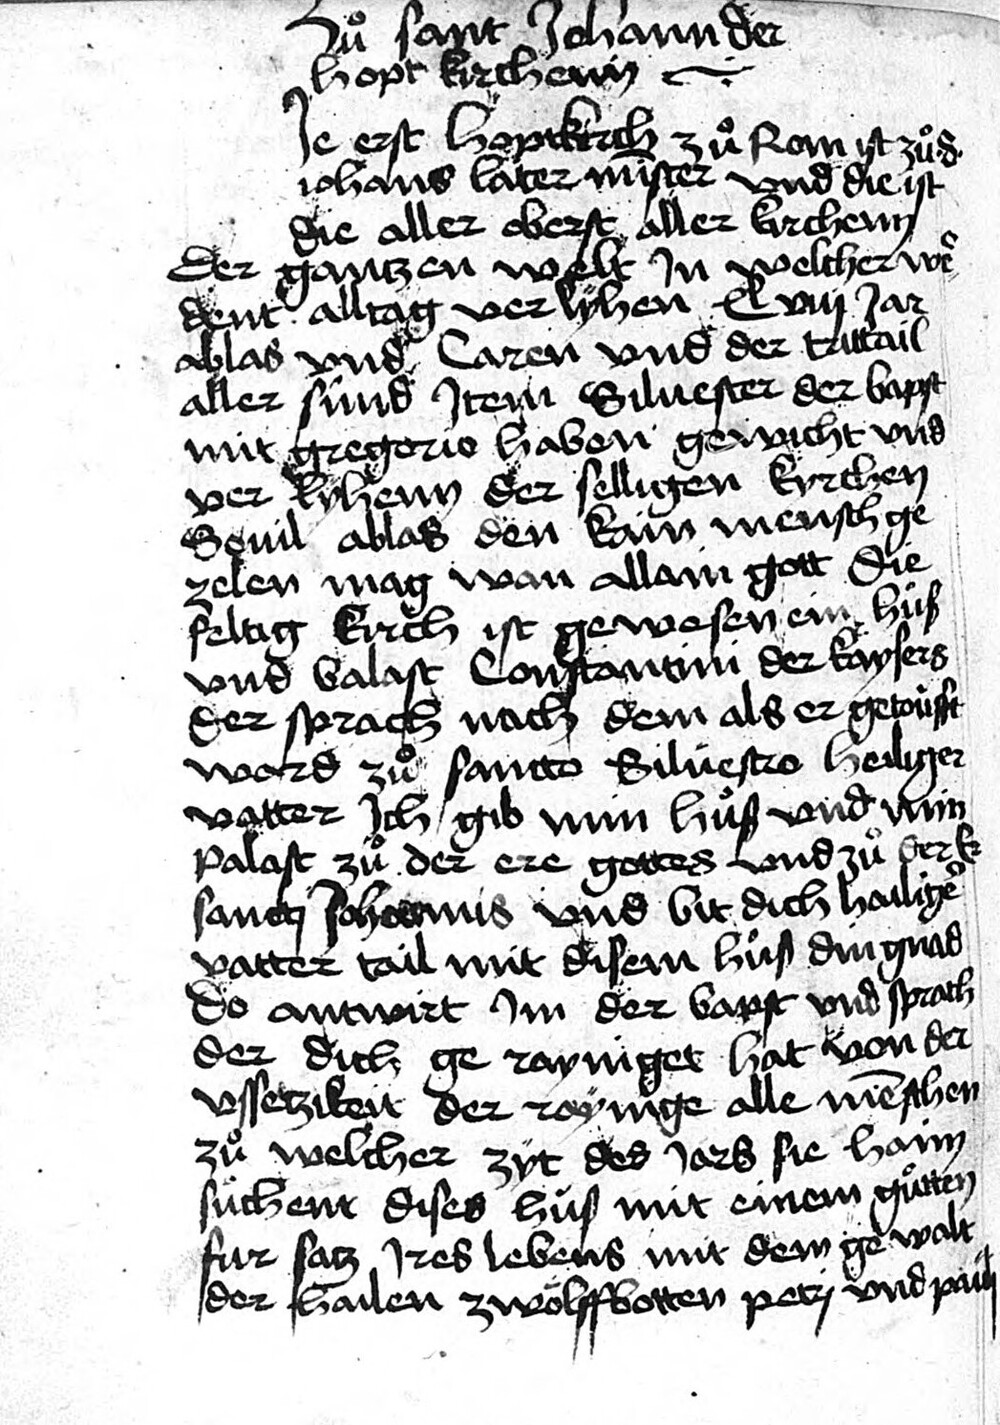 Zů sant Johann der
hopt kirchenn
Je erst hoptkirch zů Rom ist zů d.
iohans later mister vnd die ist
die aller oberst aller kirchenn
der gantzen welt Jn welcher we
dent alltag verlyhen C viij Jar
ablas vnd Caren vnd der trittail
aller sünd Jtem Siluester der bapst
mit gregorio haben gewicht vnd
ver lyhenn der selligen kyrchen
Souil ablas den kain mensch ge
zelen mag wan allain gott Die
seltig kirch ist gewesen ein hüß
vnd balast Constantini der kaysers
der sprach nach dem als er getoüfft
ward zů santto Silüestro heiliger
vatter Jch gib min hůß vnd min
palast zů der ere gottes vnd zů der kr
sanctj Johannis vnd bit dich hailige
vatter tail mit disem hůß din gnad
Do antwirt Jm der bapst vnd sprach
der dich ge rayniget hat von der
vssetzikeit der raynige alle menschen
zů welcher zyt des Jars sie haim
süchent dises hüß mit einem gůtten
fur satz Jres lebens mit dem gewalt
der hailen zwölffbotten petrj vnd paulj